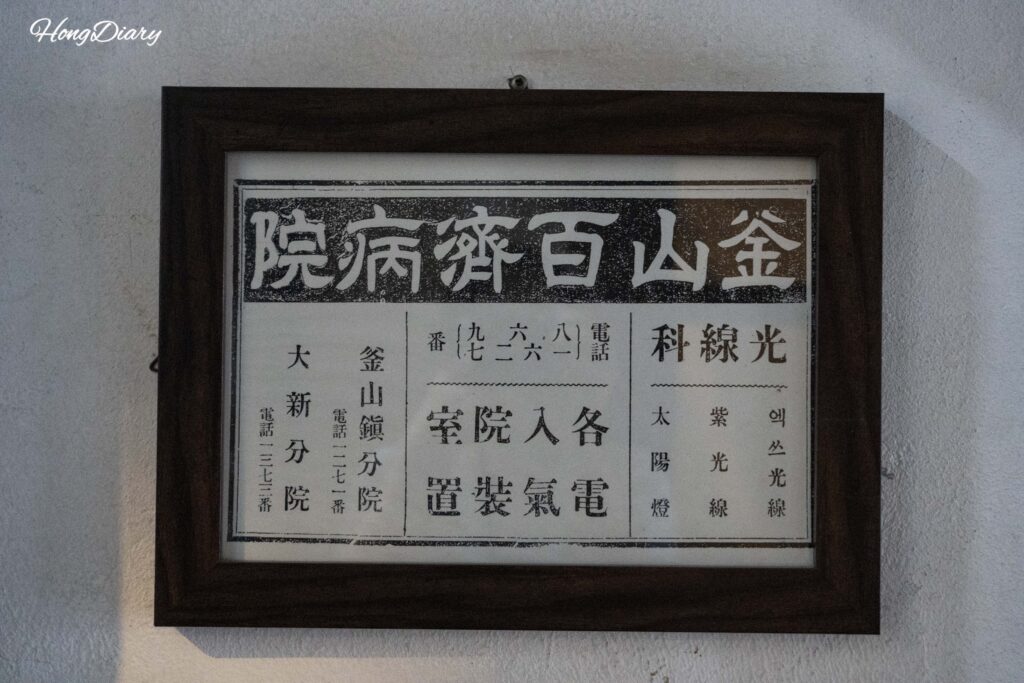 釜山百濟病院
光線科
엑쓰光線
紫光線
太陽燈
電話
八六九
一六二七
番
各入院室
電氣裝置
釜山鎭分院
電話一二七一番
大新分院
電話一三七三番
HongDiary